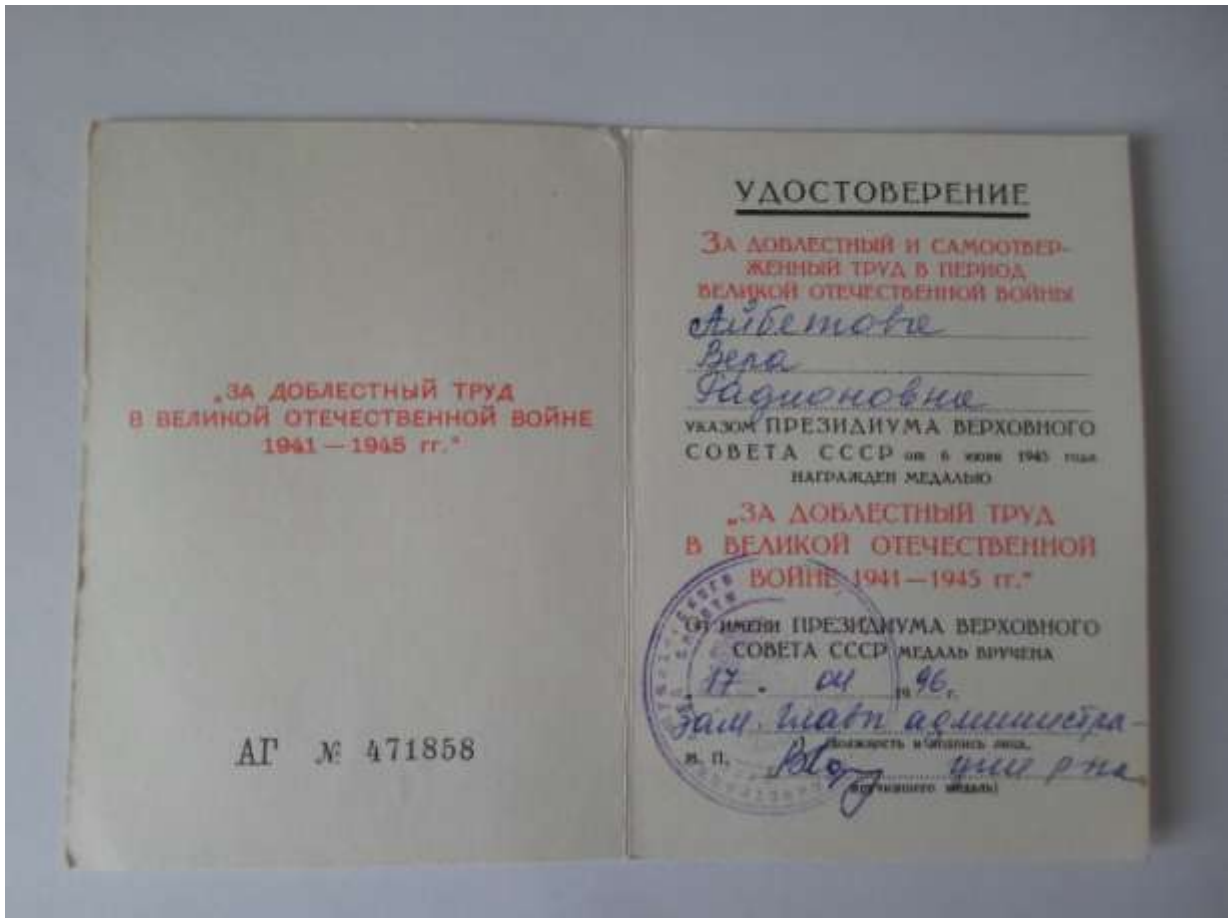 „ЗА ДОБЛЕСТНЫЙ ТРУД
В ВЕЛИКОЙ ОТЕЧЕСТВЕННОЙ ВОЙНЕ
1941 — 1945 гг.“
АГ № 471858
УДОСТОВЕРЕНИЕ
ЗА ДОБЛЕСТНЫЙ И САМООТВЕР-
ЖЕННЫЙ ТРУД В ПЕРИОД
ВЕЛИКОЙ ОТЕЧЕСТВЕННОЙ ВОЙНЫ
Айбетова
Вера
Радионовна
УКАЗОМ ПРЕЗИДИУМА ВЕРХОВНОГО
СОВЕТА СССР от 6 июня 1945 года
НАГРАЖДЕН МЕДАЛЬЮ
„ЗА ДОБЛЕСТНЫЙ ТРУД
В ВЕЛИКОЙ ОТЕЧЕСТВЕННОЙ
ВОЙНЕ 1941—1945 гг.“
ОТ ИМЕНИ ПРЕЗИДИУМА ВЕРХОВНОГО
СОВЕТА СССР МЕДАЛЬ ВРУЧЕНА
17. 04 1996 г.
Зам. главы администра-
(должность и подпись лица,
М. П. ции р-на
вручившего медаль)